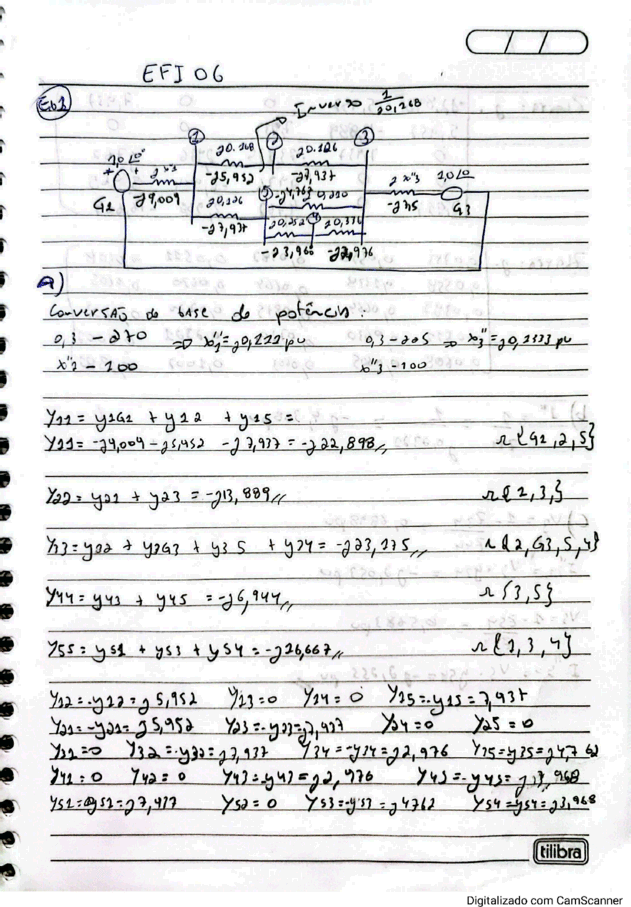 EFI 06
Ex1
Inverso 1/j0,168
1 2 3
j0.168 j0.126
1,0∟0° -j5,952 -j7,937 j x"3 1,0∟0
j x"1 -j4,762 j0,210
G1 -j9,009 j0,126 5 j0,252 4 j0,336 -j7,5 G3
-j7,937
-j3,968 -j2,976
A)
Conversão de base de potência:
0,3 - 270 ⇒ x"1 = j0,111 pu 0,3 - 225 ⇒ x"3 = j0,1333 pu
x"1 - 100 x"3 - 100
Y11 = y1G1 + y12 + y15 =
Y11 = -j9,009 - j5,952 - j7,937 = -j22,898,, n {G1, 2, 5}
Y22 = y21 + y23 = -j13,889,, n {1, 3,}
Y33 = y32 + y3G3 + y35 + y34 = -j23,175,, n {2, G3, 5, 4}
Y44 = y43 + y45 = -j6,944,, n {3, 5}
Y55 = y51 + y53 + y54 = -j16,667,, n {1, 3, 4}
Y12 = -y12 = j5,952 Y13 = 0 Y14 = 0 Y15 = -y15 = 7,937
Y21 = -y21 = j5,952 Y23 = -y23 = j7,937 Y24 = 0 Y25 = 0
Y31 = 0 Y32 = -y32 = j7,937 Y34 = -y34 = j2,976 Y35 = y35 = j4,762
Y41 = 0 Y42 = 0 Y43 = -y43 = j2,976 Y45 = -y45 = j3,968
Y51 = y51 = j7,937 Y52 = 0 Y53 = -y53 = j4762 Y54 = y54 = j3,968
tilibra
Digitalizado com CamScanner